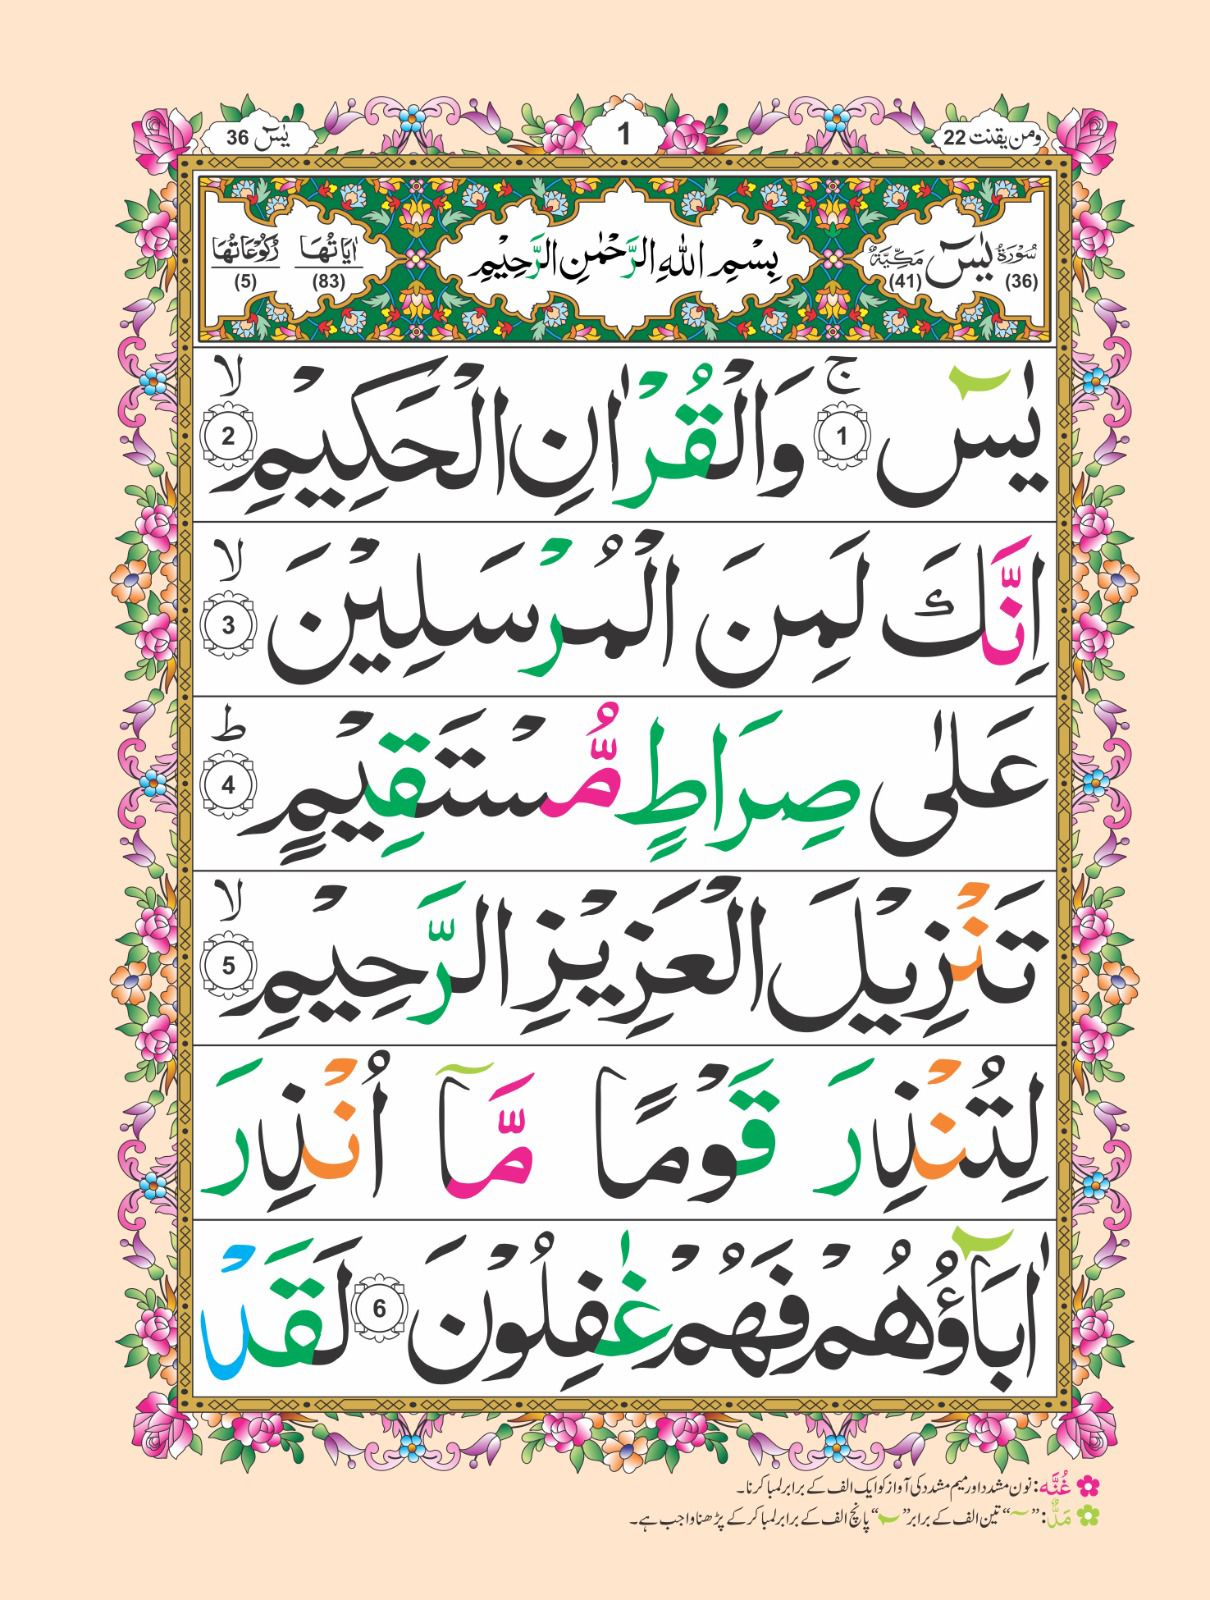 ومن یقنت 22
1
یٰسٓ 36
سُوْرَةُ یٰسٓ مَکِّیَّةٌ
(36) (41)
بِسْمِ اللهِ الرَّحْمٰنِ الرَّحِیْمِ
اٰیَاتُهَا (83)
رُکُوْعَاتُهَا (5)
یٰسٓ ۚ 1 وَالْقُرْاٰنِ الْحَکِیْمِ ۙ 2
اِنَّكَ لَمِنَ الْمُرْسَلِیْنَ ۙ 3
عَلٰی صِرَاطٍ مُّسْتَقِیْمٍ ؕ 4
تَنْزِیْلَ الْعَزِیْزِ الرَّحِیْمِ ۙ 5
لِتُنْذِرَ قَوْمًا مَّاۤ اُنْذِرَ
اٰبَآؤُهُمْ فَهُمْ غٰفِلُوْنَ 6 لَقَدْ
غُنَّه: نون مشدد اور میم مشدد کی آواز کو ایک الف کے برابر لمبا کرنا۔
مَدٌّ: ”ۤ“ تین الف کے برابر ”ٓ“ پانچ الف کے برابر لمبا کر کے پڑھنا واجب ہے۔